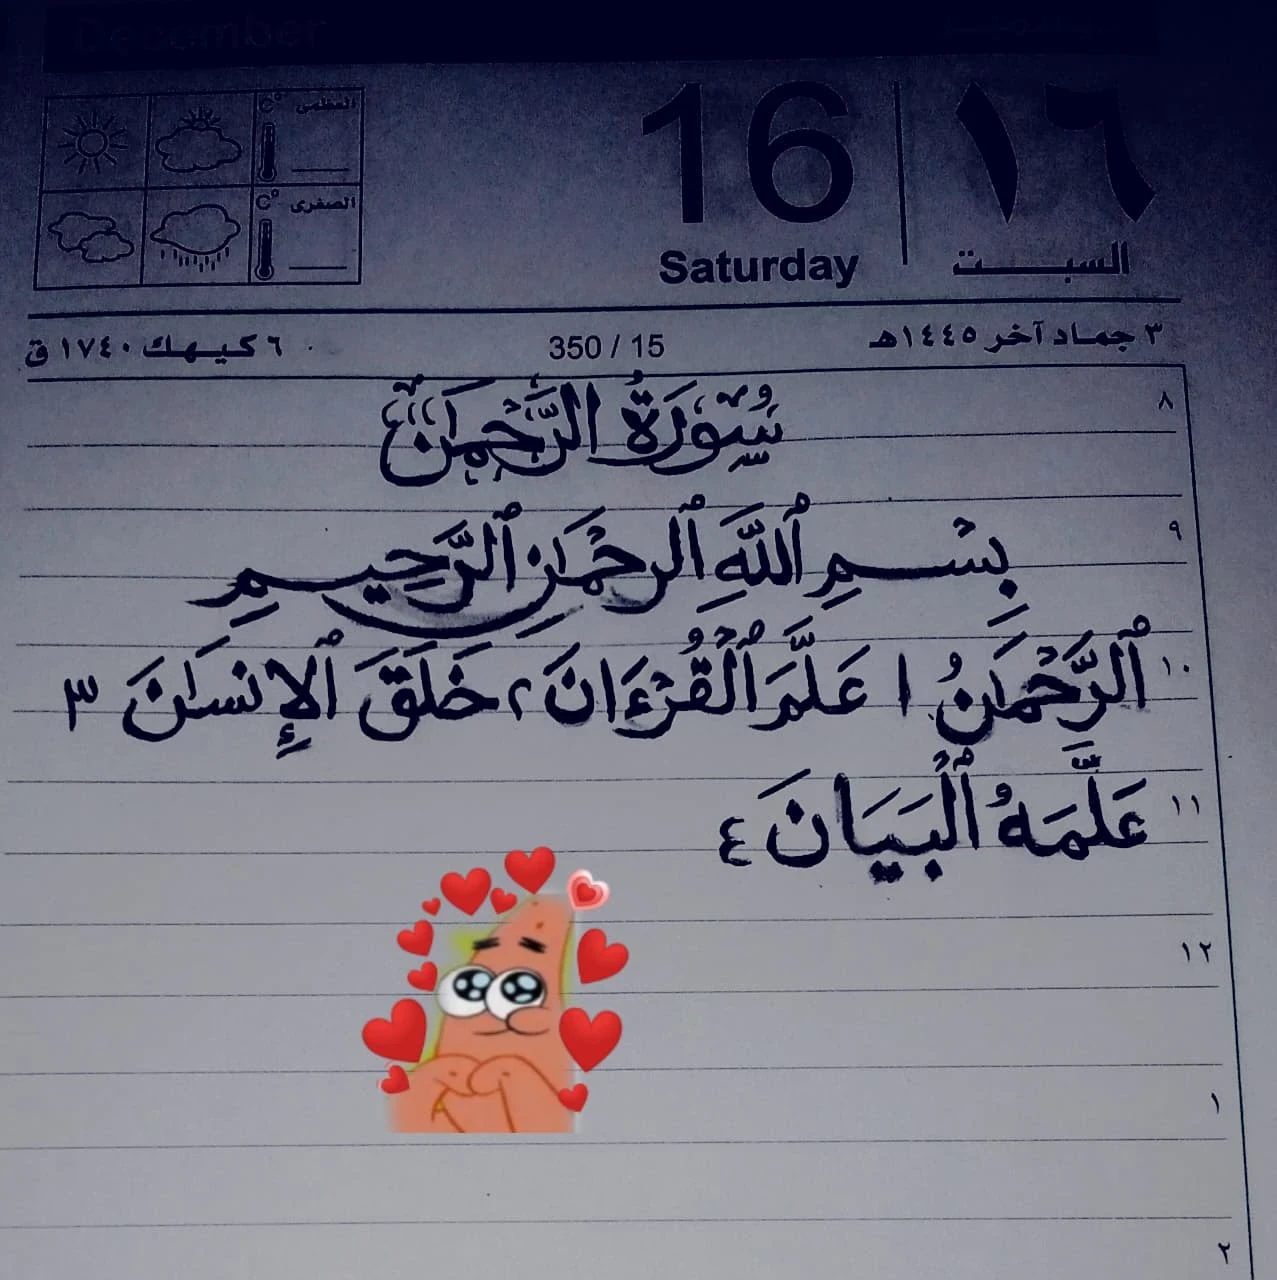 December
16 | ١٦
Saturday السبت
العظمى C°
الصغرى C°
٣ جمـاد آخر ١٤٤٥هـ 350 / 15 ٦ كيـهـك ١٧٤٠ ق
٨
سُورَةُ الرَّحْمَٰن
٩
بِسْمِ ٱللَّهِ ٱلرحْمَٰنِ ٱلرَّحِيمِ
١٠
ٱلرَّحْمَٰنُ ١ عَلَّمَ ٱلْقُرْءَانَ ٢ خَلَقَ ٱلْإِنسَٰنَ ٣
١١
عَلَّمَهُ ٱلْبَيَانَ ٤
١٢
١
٢